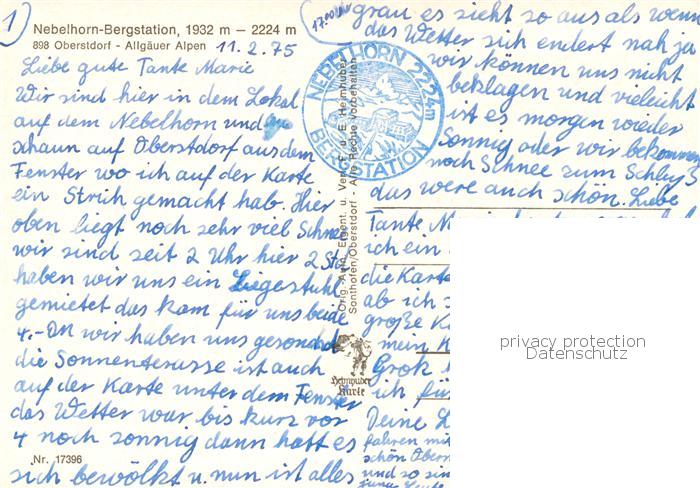 1)
Nebelhorn-Bergstation, 1932 m – 2224 m
898 Oberstdorf - Allgäuer Alpen
11.2.75
Liebe gute Tante Marie
Wir sind hier in dem Lokal
auf dem Nebelhorn und
schaun auf Oberstdorf aus dem
Fenster wo ich auf der Karte
ein Strich gemacht hab. Hier
oben liegt noch sehr viel Schnee
wir sind seit 2 Uhr hier 2 Std
haben wir uns ein Liegestuhl
gemietet das kam für uns beide
4.-DM wir haben uns gesonnd
die Sonnenterasse ist auch
auf der Karte unter dem Fenster
das Wetter war bis kurz vor
4 noch sonnig dann hatt es
sich bewölkt u. nun ist alles
Nr. 17396
17.00 Uhr
grau es sieht so aus als wenn
das Wetter sich endert nah ja
wir können uns nicht
beklagen und vieleicht
ist es morgen wieder
Sonnig oder wir bekommen
noch Schnee zum Schluß
das were auch schön. Liebe
Tante
ich ein
die Karte
ab ich
große K
mein K
Grok
ich für
Deine L
fahren mit
schön Obers
und so sin
NEBELHORN 2224m
BERGSTATION
Orig.-Aufn. Eigent. u. Verl. F. d. E. Hemhuber
Sonthofen/Oberstdorf - Alle Rechte vorbehalten
Hemhuber
Karte
privacy protection
Datenschutz